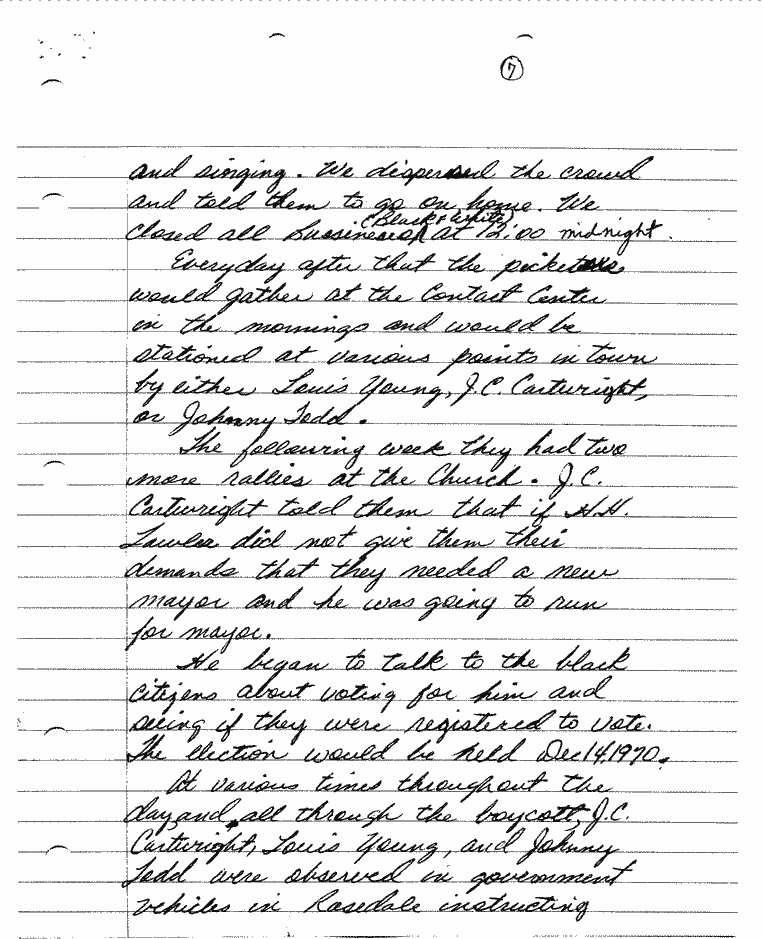 7
and singing. We dispersed the crowd
and told them to go on home. We
(Black & White)
closed all Bussinesses at 12:00 midnight.
Everyday after that the picketers
would gather at the Contact Center
in the mornings and would be
stationed at various points in town
by either Louis Young, J.C. Cartwright,
or Johnny Todd.
The following week they had two
more rallies at the Church. J.C.
Cartwright told them that if H.H.
Lawler did not give them their
demands that they needed a new
mayor and he was going to run
for mayor.
He began to talk to the black
citizens about voting for him and
seeing if they were registered to vote.
The election would be held Dec 14, 1970.
At various times throughout the
day, and all through the boycott, J.C.
Cartwright, Louis Young, and Johnny
Todd were observed in government
vehicles in Rosedale instructing